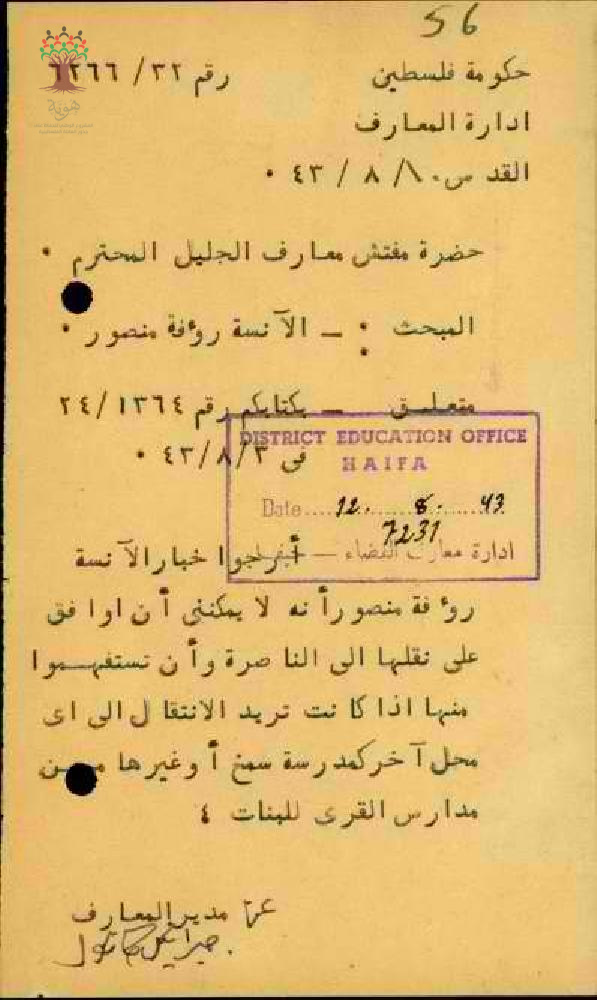 56
حكومة فلسطين رقم ٣٢/ ٦٢٦٦
ادارة المعارف
القدس ١٠/ ٨ / ٤٣ ٠
حضرة مفتش معارف الجليل المحترم ٠
المبحث : ـ الآنسة روءفة منصور ٠
متعلـق ـ بكتابكم رقم ٢٤/١٣٦٤
في ٤٣/٨/٣ ٠
DISTRICT EDUCATION OFFICE
HAIFA
Date.... 12. 8. 43
7231
ادارة معارف القضاء — حيفا
أرجوا خبار الآنسة
روءفة منصور أنه لا يمكنني أن اوافق
على نقلها الى الناصرة وأن تستفهمـوا
منها اذا كانت تريد الانتقال الى اى
محل آخر كمدرسة سمخ أوغيرها مـن
مدارس القرى للبنات ٤
عن مدير المعارف
هوية